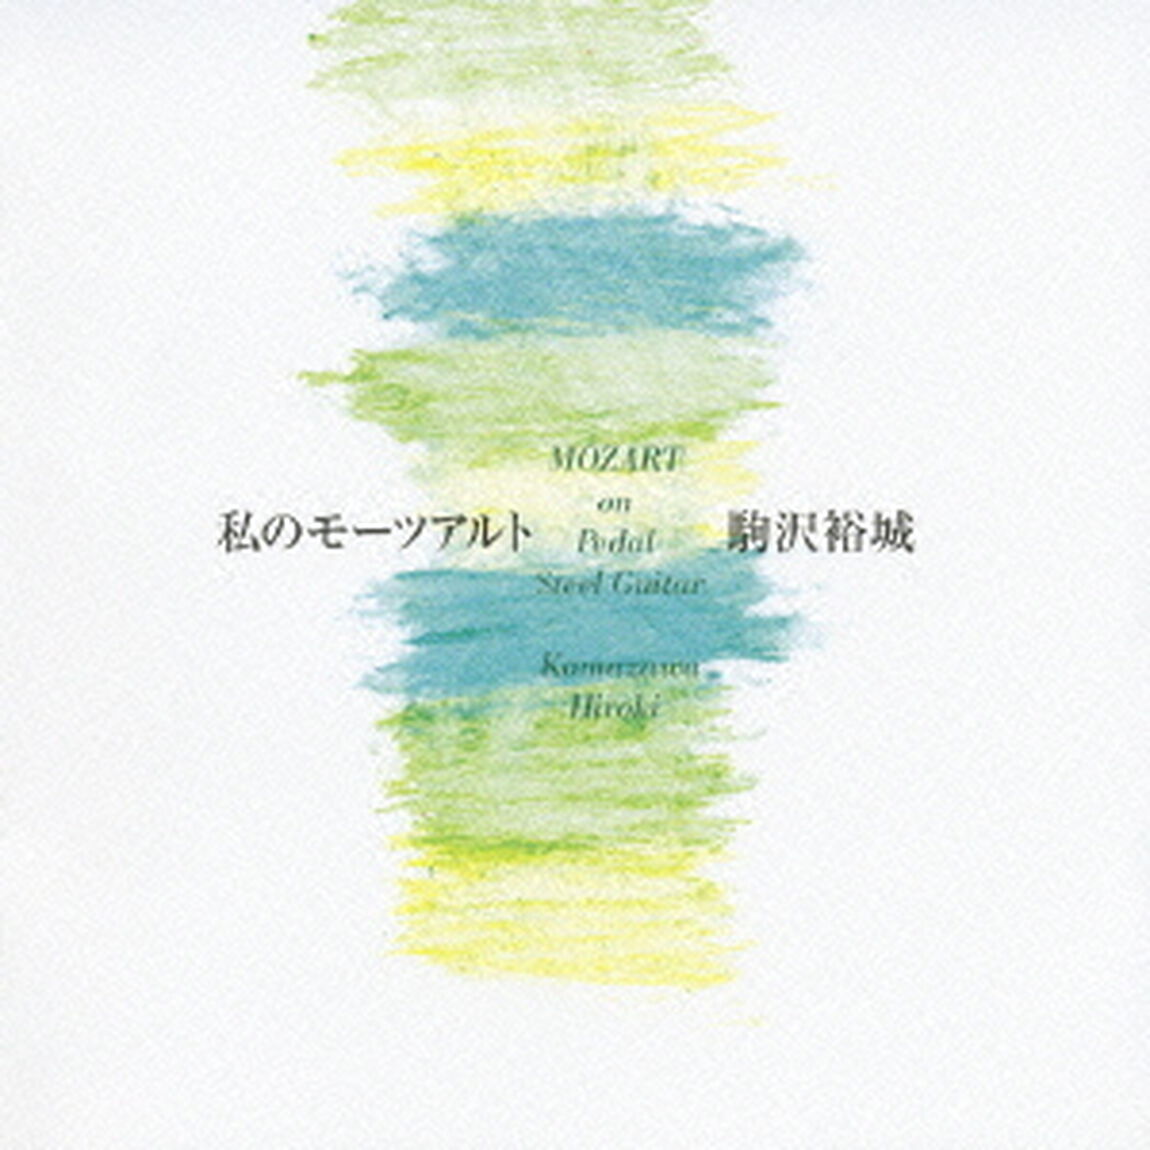 私のモーツアルト
MOZART
on
Pedal
Steel Guitar
Komazawa
Hiroki
駒沢裕城